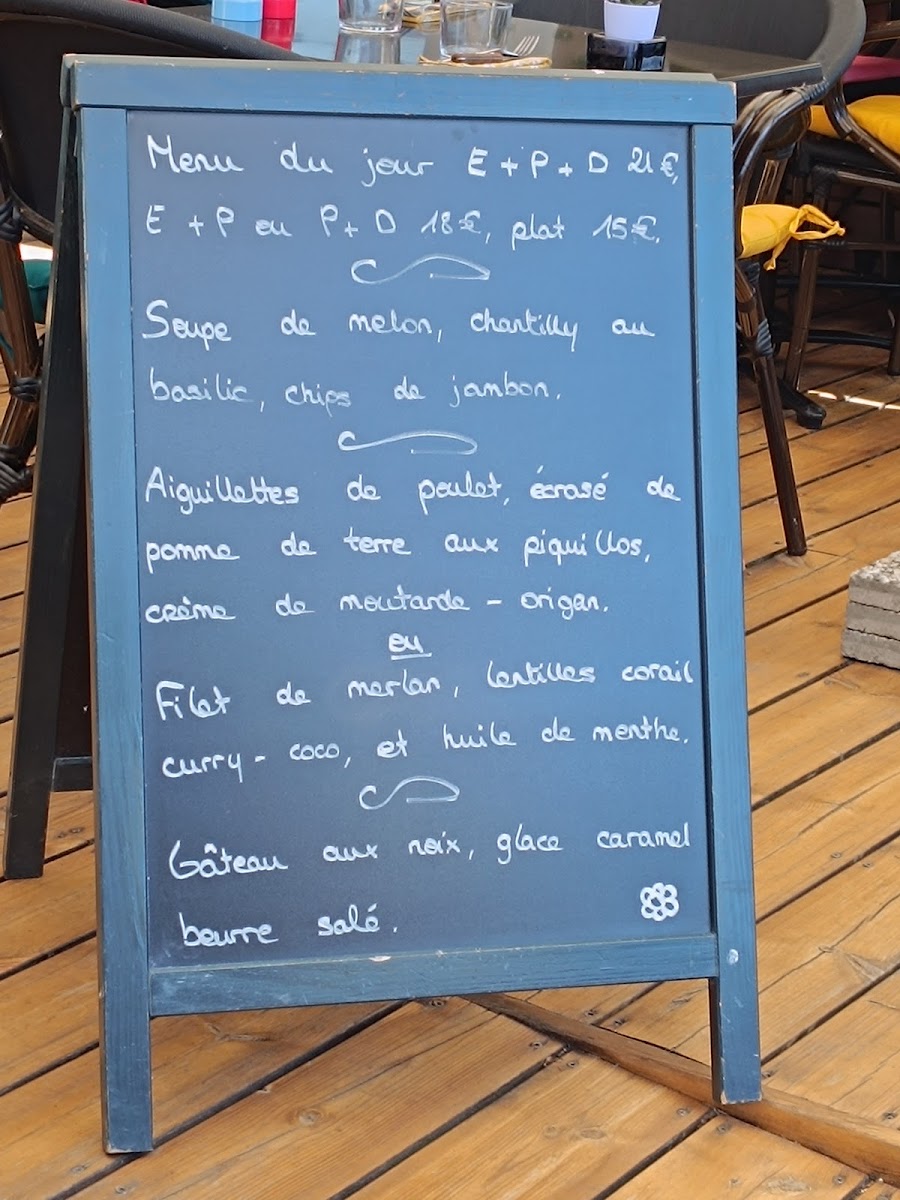 Menu du jour E + P + D 21€,
E + P ou P + D 18€, plat 15€.
Soupe de melon, chantilly au
basilic, chips de jambon.
Aiguillettes de poulet, écrasé de
pomme de terre aux piquillos,
crème de moutarde - origan.
ou
Filet de merlan, lentilles corail
curry - coco, et huile de menthe.
Gâteau aux noix, glace caramel
beurre salé.